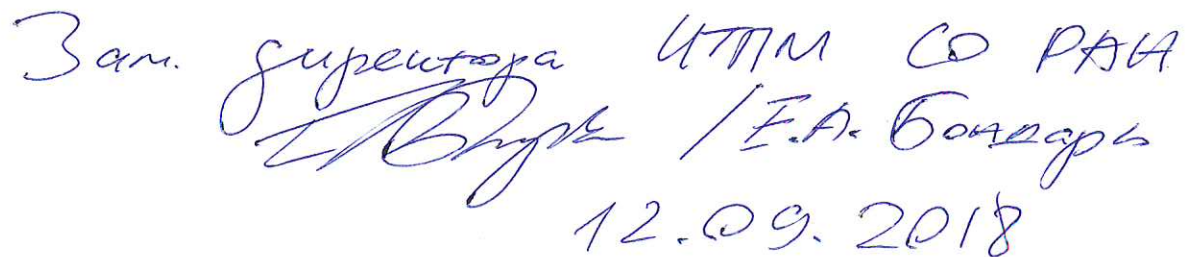 Зам. директора ИТПМ СО РАН
/Е.А. Бондарь
12.09.2018